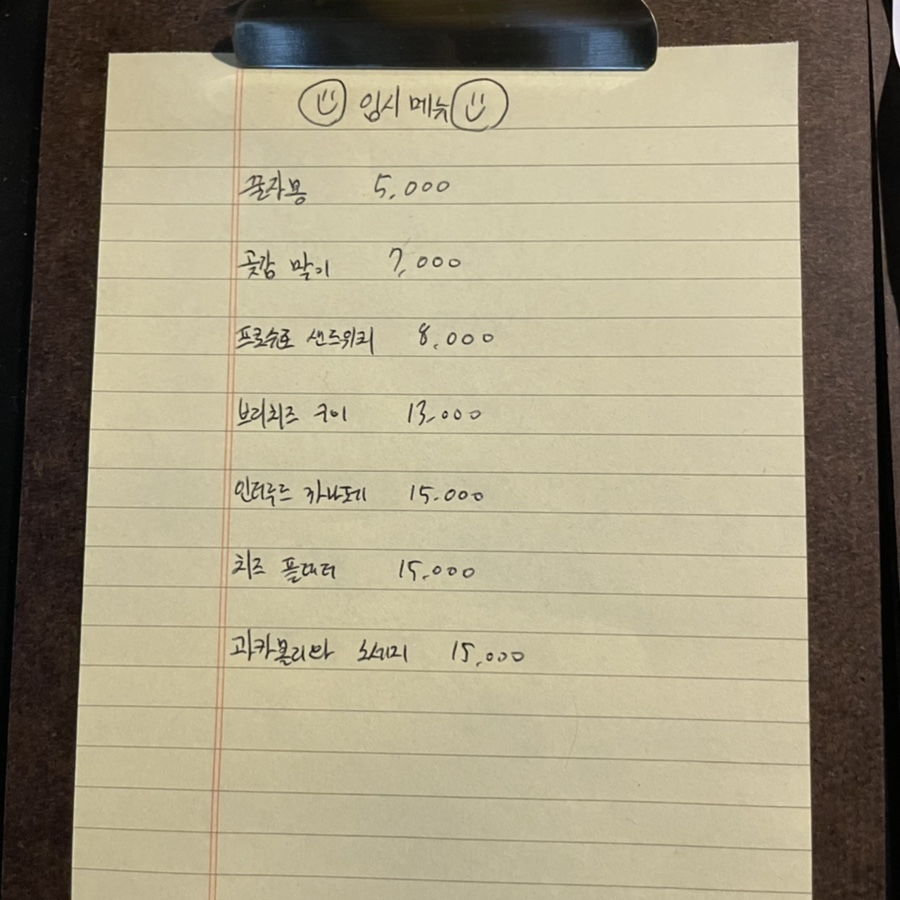 임시 메뉴
꿀자몽 5,000
곶감 말이 7,000
프로슈토 샌드위치 8,000
브리치즈 구이 13,000
인터루드 카나페 15.000
치즈 플래터 15,000
과카몰리와 15,000